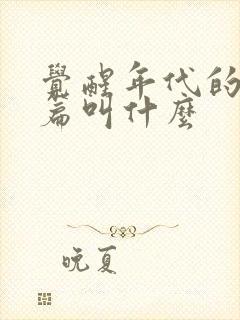 覺醒年代的
篇叫什麼
晚夏